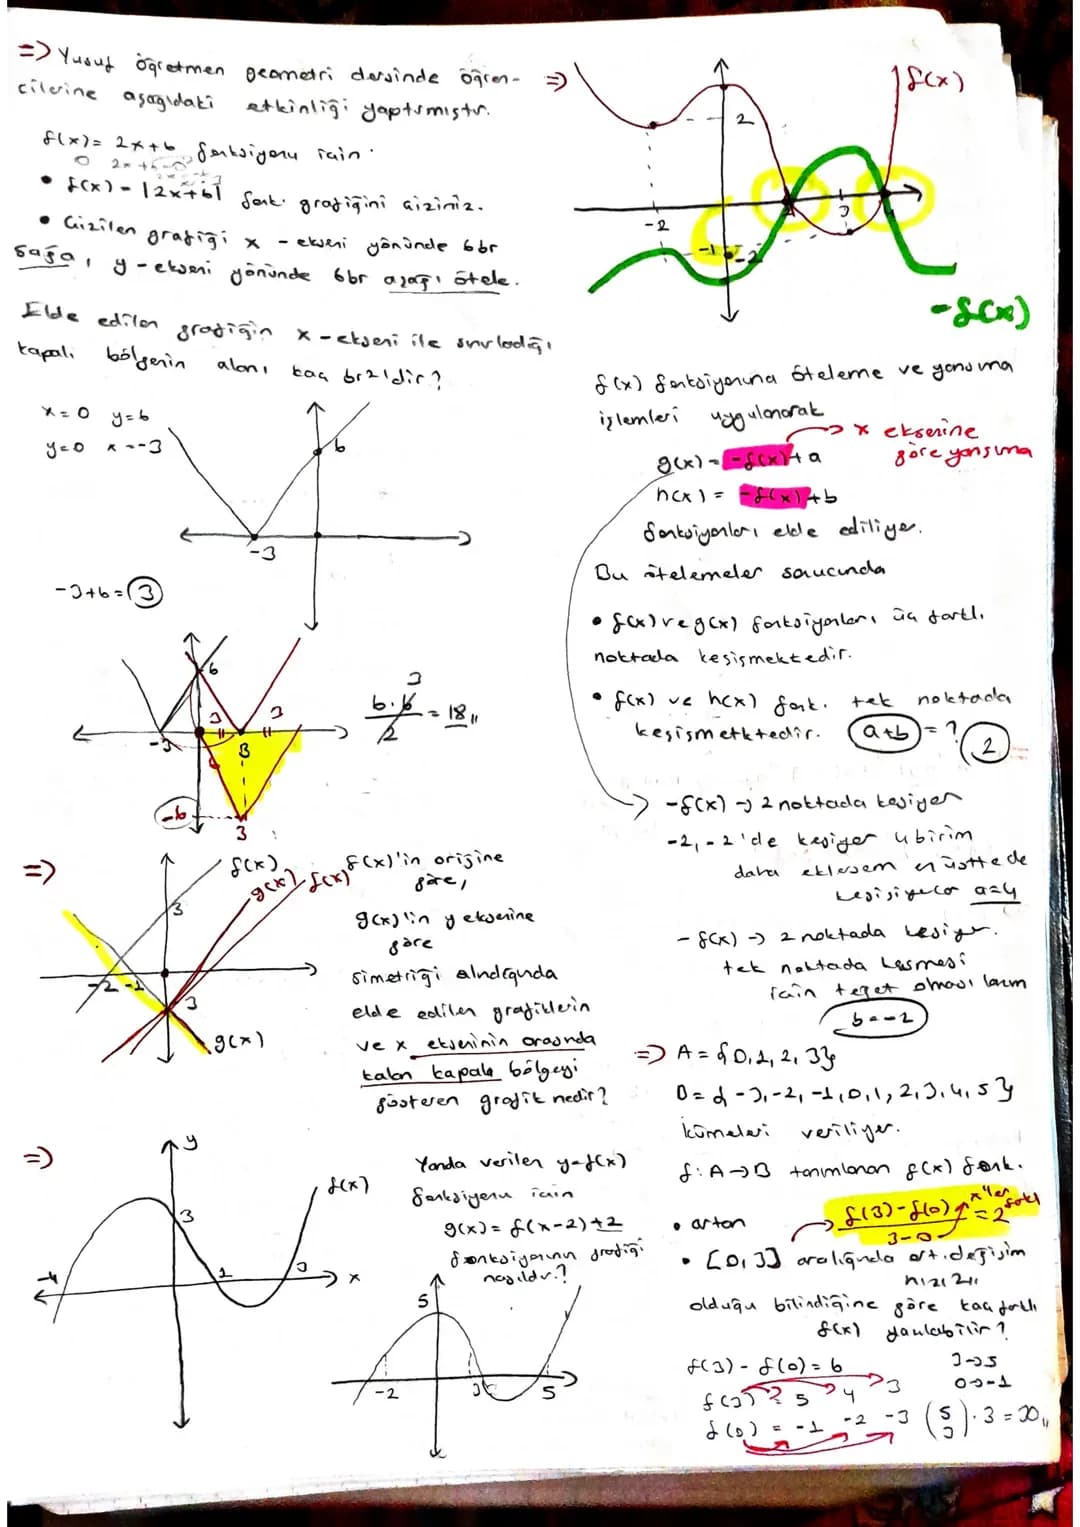 => Yusuf öğretmen geometri dersinde öğren-
cilerine aşağıdaki etkinliği yaptırmıştır.
f(x)= 2x+6 fonksiyonu için
• f(x) = |2x+6| fonk. grafiğini çiziniz.
• Çizilen grafiği x - ekseni yönünde 6 br
sağa, y - ekseni yönünde 6br aşağı ötele.
Elde edilen grafiğin x - ekseni ile sınırladığı
kapalı bölgenin alanı kaç br2'dir?
x=0 y=6
y=0 x=-3
6
-3
-3+6=3
6
3 3
-3
3
-6
3
6.6 3
2
= 18,,
=>
f(x)
g(x) f(x)
3
-2 -1
3
g(x)
f(x)'in orijine
göre,
g(x)'in y eksenine
göre
simetriği alındığında
elde edilen grafiklerin
ve x ekseninin arasında
kalan kapalı bölgeyi
gösteren grafik nedir?
=>
y
f(x)
3
-4 1 3 x
Yanda verilen y=f(x)
fonksiyonu için
g(x) = f(x-2)+2
fonksiyonun grafiği
nasıldır?
5
-2 3 5
=>
f(x)
2
-2
3
4
-1
-2
-f(x)
f(x) fonksiyonuna öteleme ve yansıma
işlemleri uygulanarak
x eksenine
göre yansıma
g(x) = -f(x)+a
h(x) = -f(x)+b
fonksiyonları elde ediliyor.
Bu ötelemeler sonucunda
• f(x) ve g(x) fonksiyonları üç farklı
noktada kesişmektedir.
• f(x) ve h(x) fonk. tek noktada
kesişmektedir. a+b = ? 2
-f(x) -> 2 noktada kesiyor
-2, -2'de kesiyor 4 birim
daha eklesem en üstte de
kesişiyorlar a=4
- f(x) -> 2 noktada kesiyor.
tek noktada kesmesi
için teğet olması lazım
b=-2
=> A = {0, 1, 2, 3}
B = {-3, -2, -1, 0, 1, 2, 3, 4, 5}
kümeleri veriliyor.
f: A->B tanımlanan f(x) fonk.
• artan
f(3)-f(0)
3-0
= 2
x'ler farkı
• [0,3] aralığında ort. değişim
hızı 2,,
olduğu bilindiğine göre kaç farklı
f(x) yazılabilir?
f(3) - f(0) = 6
3->5
0->-1
f(3) = 5 4 3
f(0) = -1 -2 -3
(5 3) . 3 = 30,,